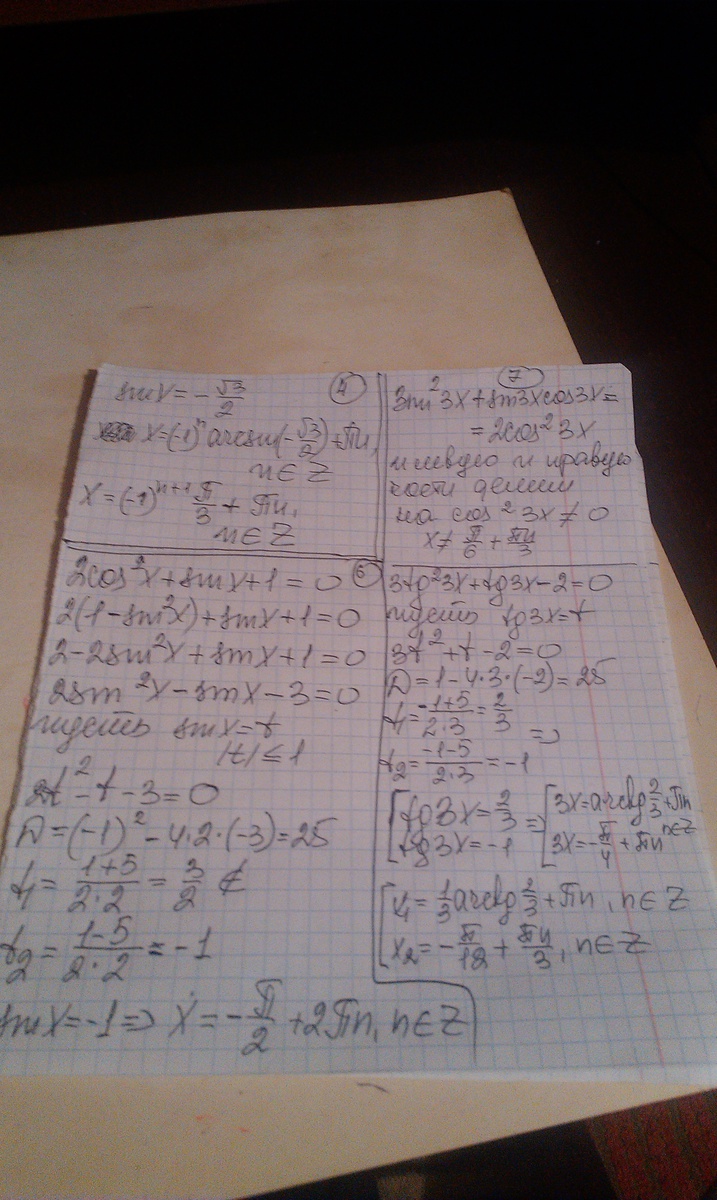 ④
sin x = -√3/2
x = (-1)ⁿ arcsin(-√3/2) + πn,
n ∈ Z
x = (-1)ⁿ⁺¹ π/3 + πn,
n ∈ Z
⑥
2cos²x + sin x + 1 = 0
2(1 - sin²x) + sin x + 1 = 0
2 - 2sin²x + sin x + 1 = 0
2sin²x - sin x - 3 = 0
пусть sin x = t
|t| ≤ 1
2t² - t - 3 = 0
D = (-1)² - 4·2·(-3) = 25
t₁ = (1+5)/(2·2) = 3/2 ∉
t₂ = (1-5)/(2·2) = -1
sin x = -1 => x = -π/2 + 2πn, n ∈ Z
⑦
3sin²3x + sin3x cos3x =
= 2cos²3x
и левую и правую
части делим
на cos²3x ≠ 0
x ≠ π/6 + πn/3
3tg²3x + tg3x - 2 = 0
пусть tg3x = t
3t² + t - 2 = 0
D = 1 - 4·3·(-2) = 25
t₁ = (-1+5)/(2·3) = 2/3
=>
t₂ = (-1-5)/(2·3) = -1
[tg3x = 2/3 => [3x = arctg 2/3 + πn
[tg3x = -1 [3x = -π/4 + πn n∈Z
[x₁ = 1/3 arctg 2/3 + πn, n ∈ Z
[x₂ = -π/12 + πn/3, n ∈ Z